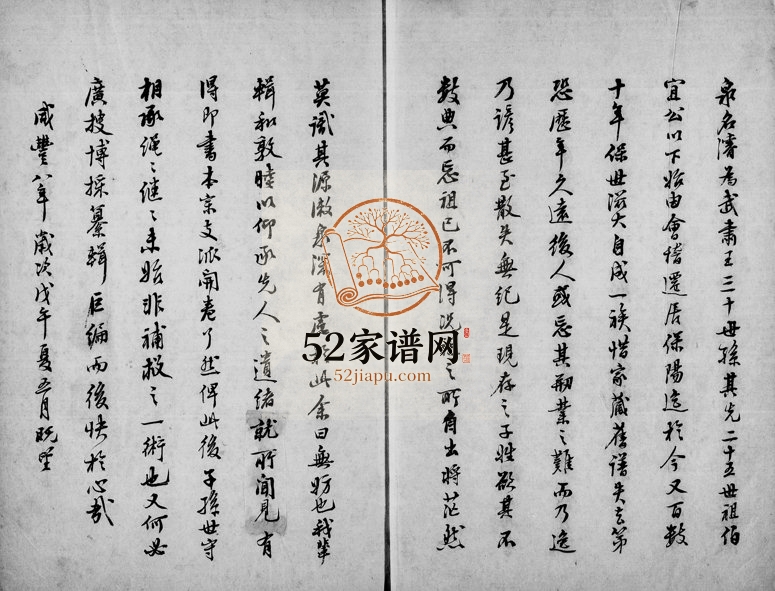 泉名濬為武肅王三十世孫其先二十五世祖伯
宜公以下始由會稽遷居保陽迄於今又百數
十年保世滋大自成一族惜家藏舊譜失去第
恐歷年久遠後人或忘其剏業之難而乃逸
乃諺甚至散失無紀是現存之子姓欲其不
數典而忘祖已不可得況之所自出將茫然
莫識其源澈泉深有慮於此余曰無妨也我輩
輯和敦睦以仰承先人之遺緒就所聞見有
得即書本宗支派開卷了然俾此後子孫世守
相承繩繩繼繼未始非補救之一術也又何必
廣搜博採纂輯巨編而後快於心哉
咸豐八年歲次戊午夏五月既望
52家谱网
52jiapu.com